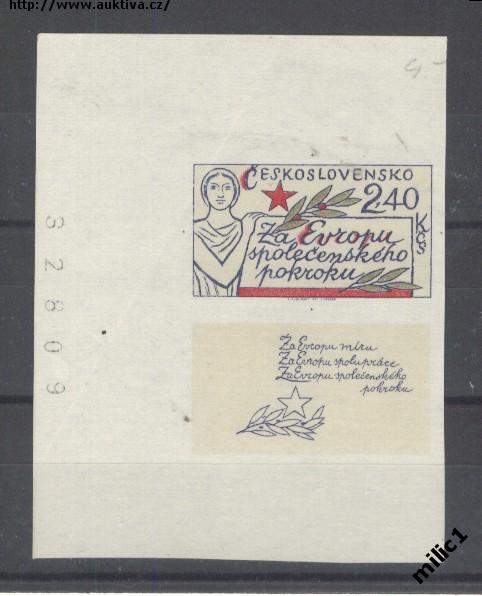 http://www.auktiva.cz/
4.-
ČESKOSLOVENSKO
2.40
Kčs
Za Evropu
společenského
pokroku
32809
Za Evropu míru
Za Evropu spolupráce
Za Evropu společenského
pokroku
milic1